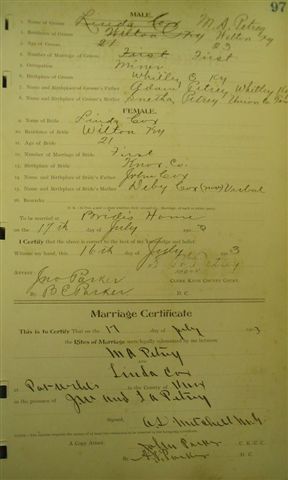 97
MALE.
1. Name of Groom Linda Cox M. A. Petrey
2. Residence of Groom Wilton Ky Wilton Ky
3. Age of Groom 21 23
4. Number of Marriage of Groom First First
5. Occupation Miner
6. Birthplace of Groom Whitley Co Ky
7. Name and Birthplace of Groom's Father Adam Petrey Whitley Ky
8. Name and Birthplace of Groom's Mother Petrey Union Co
FEMALE.
9. Name of Bride Linda Cox
10. Residence of Bride Wilton Ky
11. Age of Bride 21
12. Number of Marriage of Bride First
13. Birthplace of Bride Knox Co.
14. Name and Birthplace of Bride's Father John Cox
15. Name and Birthplace of Bride's Mother Deby Cox (now)
16. Remarks
To be married at Bride's Home
on the 17th day of July 190
I Certify that the above is correct to the best of my knowledge and belief.
Witness my hand, this 16th day of July 3
Attest:
Jno Parker CLERK KNOX COUNTY COURT.
By B C Parker D. C.
Marriage Certificate
This is to Certify That on the 17 day of July 3
the Rites of Marriage were legally solemnized by me between
M A Petrey
AND
Linda Cox
at in the County of Knox
in the presence of and Petrey
Signed, Mitchell M.G.
A Copy Attest: John Parker C. K. C. C.
By Parker D. C.